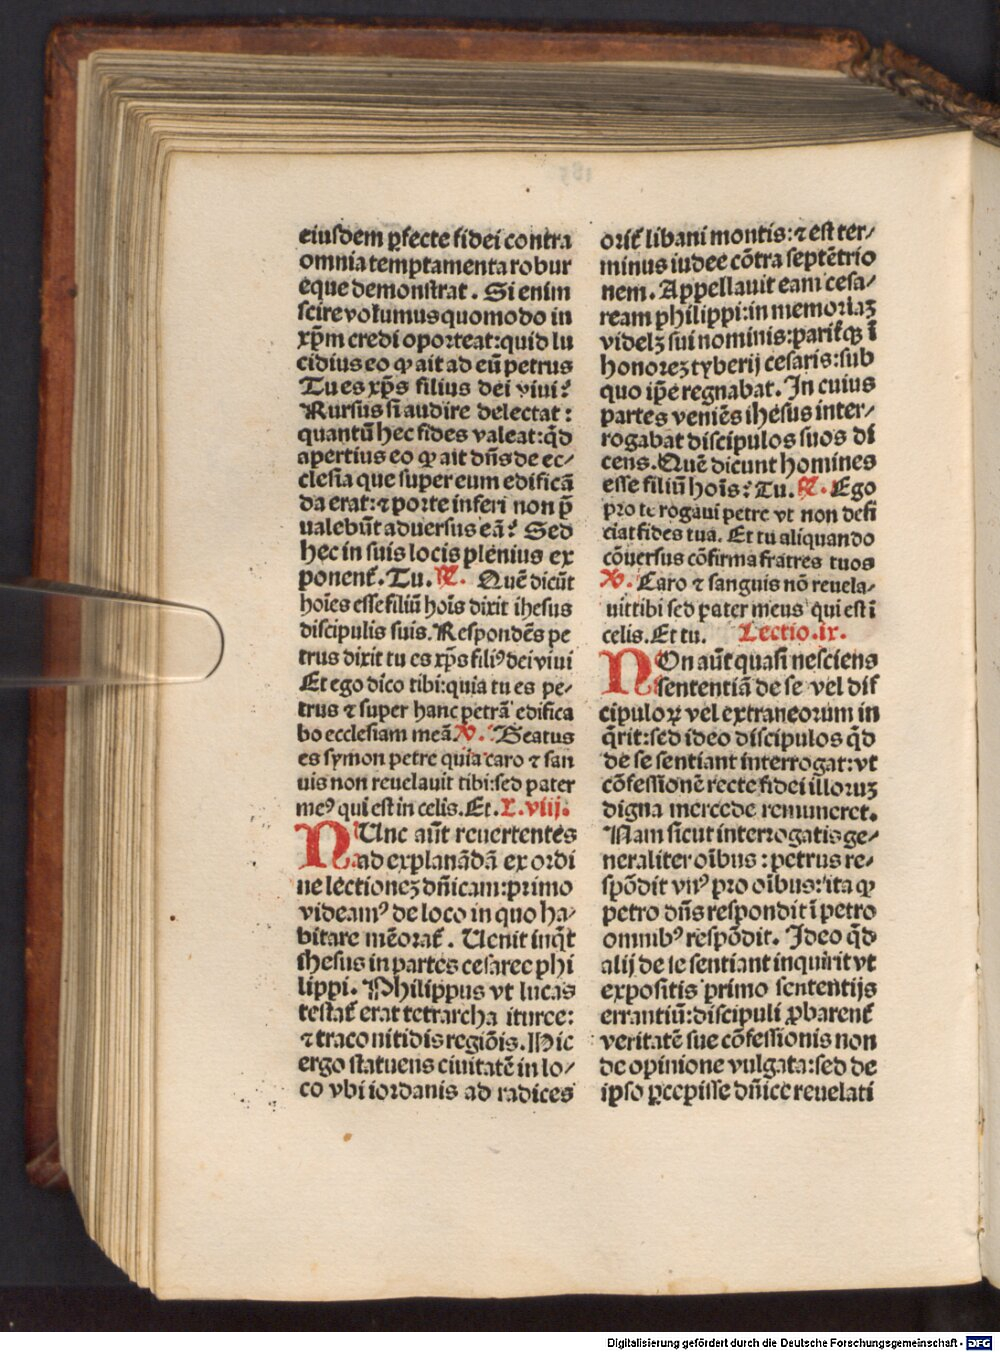 eiusdem ꝑfecte fidei contra
omnia temptamenta robur
eque demonstrat. Si enim
scire volumus quomodo in
xp̄m credi oporteat: quid lu
cidius eo ꝙ ait ad eū petrus
Tu es xp̄s filius dei vivi?
Rursus si audire delectat:
quantū hec fides valeat: qd̄
apertius eo ꝙ ait dn̄s de ec⸗
clesia que super eum edificā
da erat: ⁊ porte inferi non p̄
ualebūt aduersus eā? Sed
hec in suis locis plenius ex
ponent᷑. Tu. ℟. Quē dicūt
hoīes esse filiū hoīs dixit ihesus
discipulis suis. Respondēs pe
trus dixit tu es xp̄s filiꝰ dei vivi
Et ego dico tibi: quia tu es pe⸗
trus ⁊ super hanc petrā edifica
bo ecclesiam meā. ℣. Beatus
es symon petre quia caro ⁊ san
uis non reuelauit tibi: sed pater
meꝰ qui est in celis. Et. L. viij.
NUnc aūt reuertentes
ad explanādā ex ordi
ne lectioneꝫ dn̄icam: primo
videamꝰ de loco in quo ha⸗
bitare mēorat᷑. Uenit inqͥt
ihesus in partes cesaree phi
lippi. Philippus vt lucas
testat᷑ erat tetrarcha ituree:
⁊ traconitidis regiōis. Hic
ergo statuens ciuitatē in lo⸗
co vbi iordanis ad radices
orit᷑ libani montis: ⁊ est ter⸗
minus iudee cōtra septētrio
nem. Appellauit eam cesa⸗
ream philippi: in memoriaꝫ
videlꝫ sui nominis: parit᷑qꝫ ī
honoreꝫ tyberij cesaris: sub
quo ip̄e regnabat. In cuius
partes veniēs ihesus inter⸗
rogabat discipulos suos di
cens. Quē dicunt homines
esse filiū hoīs? Tu. ℟. Ego
pro te rogaui petre vt non defi
ciat fides tua. Et tu aliquando
cōuersus cōfirma fratres tuos
℣. Caro ⁊ sanguis nō reuela⸗
uit tibi sed pater meus qui est ī
celis. Et tu. Lectio. ix.
NOn aūt quasi nesciens
sententiā de se vel dis
cipuloꝝ vel extraneorum in
qͥrit: sed ideo discipulos qd̄
de se sentiant interrogat: vt
cōfessionē recte fidei illoruꝫ
digna mercede remuneret.
Nam sicut interrogatis ge⸗
neraliter oībus: petrus re⸗
spōdit vnꝰ pro oībus: ita ꝙ
petro dn̄s respondit ī petro
omnibꝰ respōdit. Ideo qd̄
alij de se sentiant inquirit vt
expositis primo sententijs
errantiū: discipuli ꝓbarent᷑
veritatē sue cōfessionis non
de opinione vulgata: sed de
ipso ꝑcepisse dn̄ice reuelati
Digitalisierung gefördert durch die Deutsche Forschungsgemeinschaft - DFG